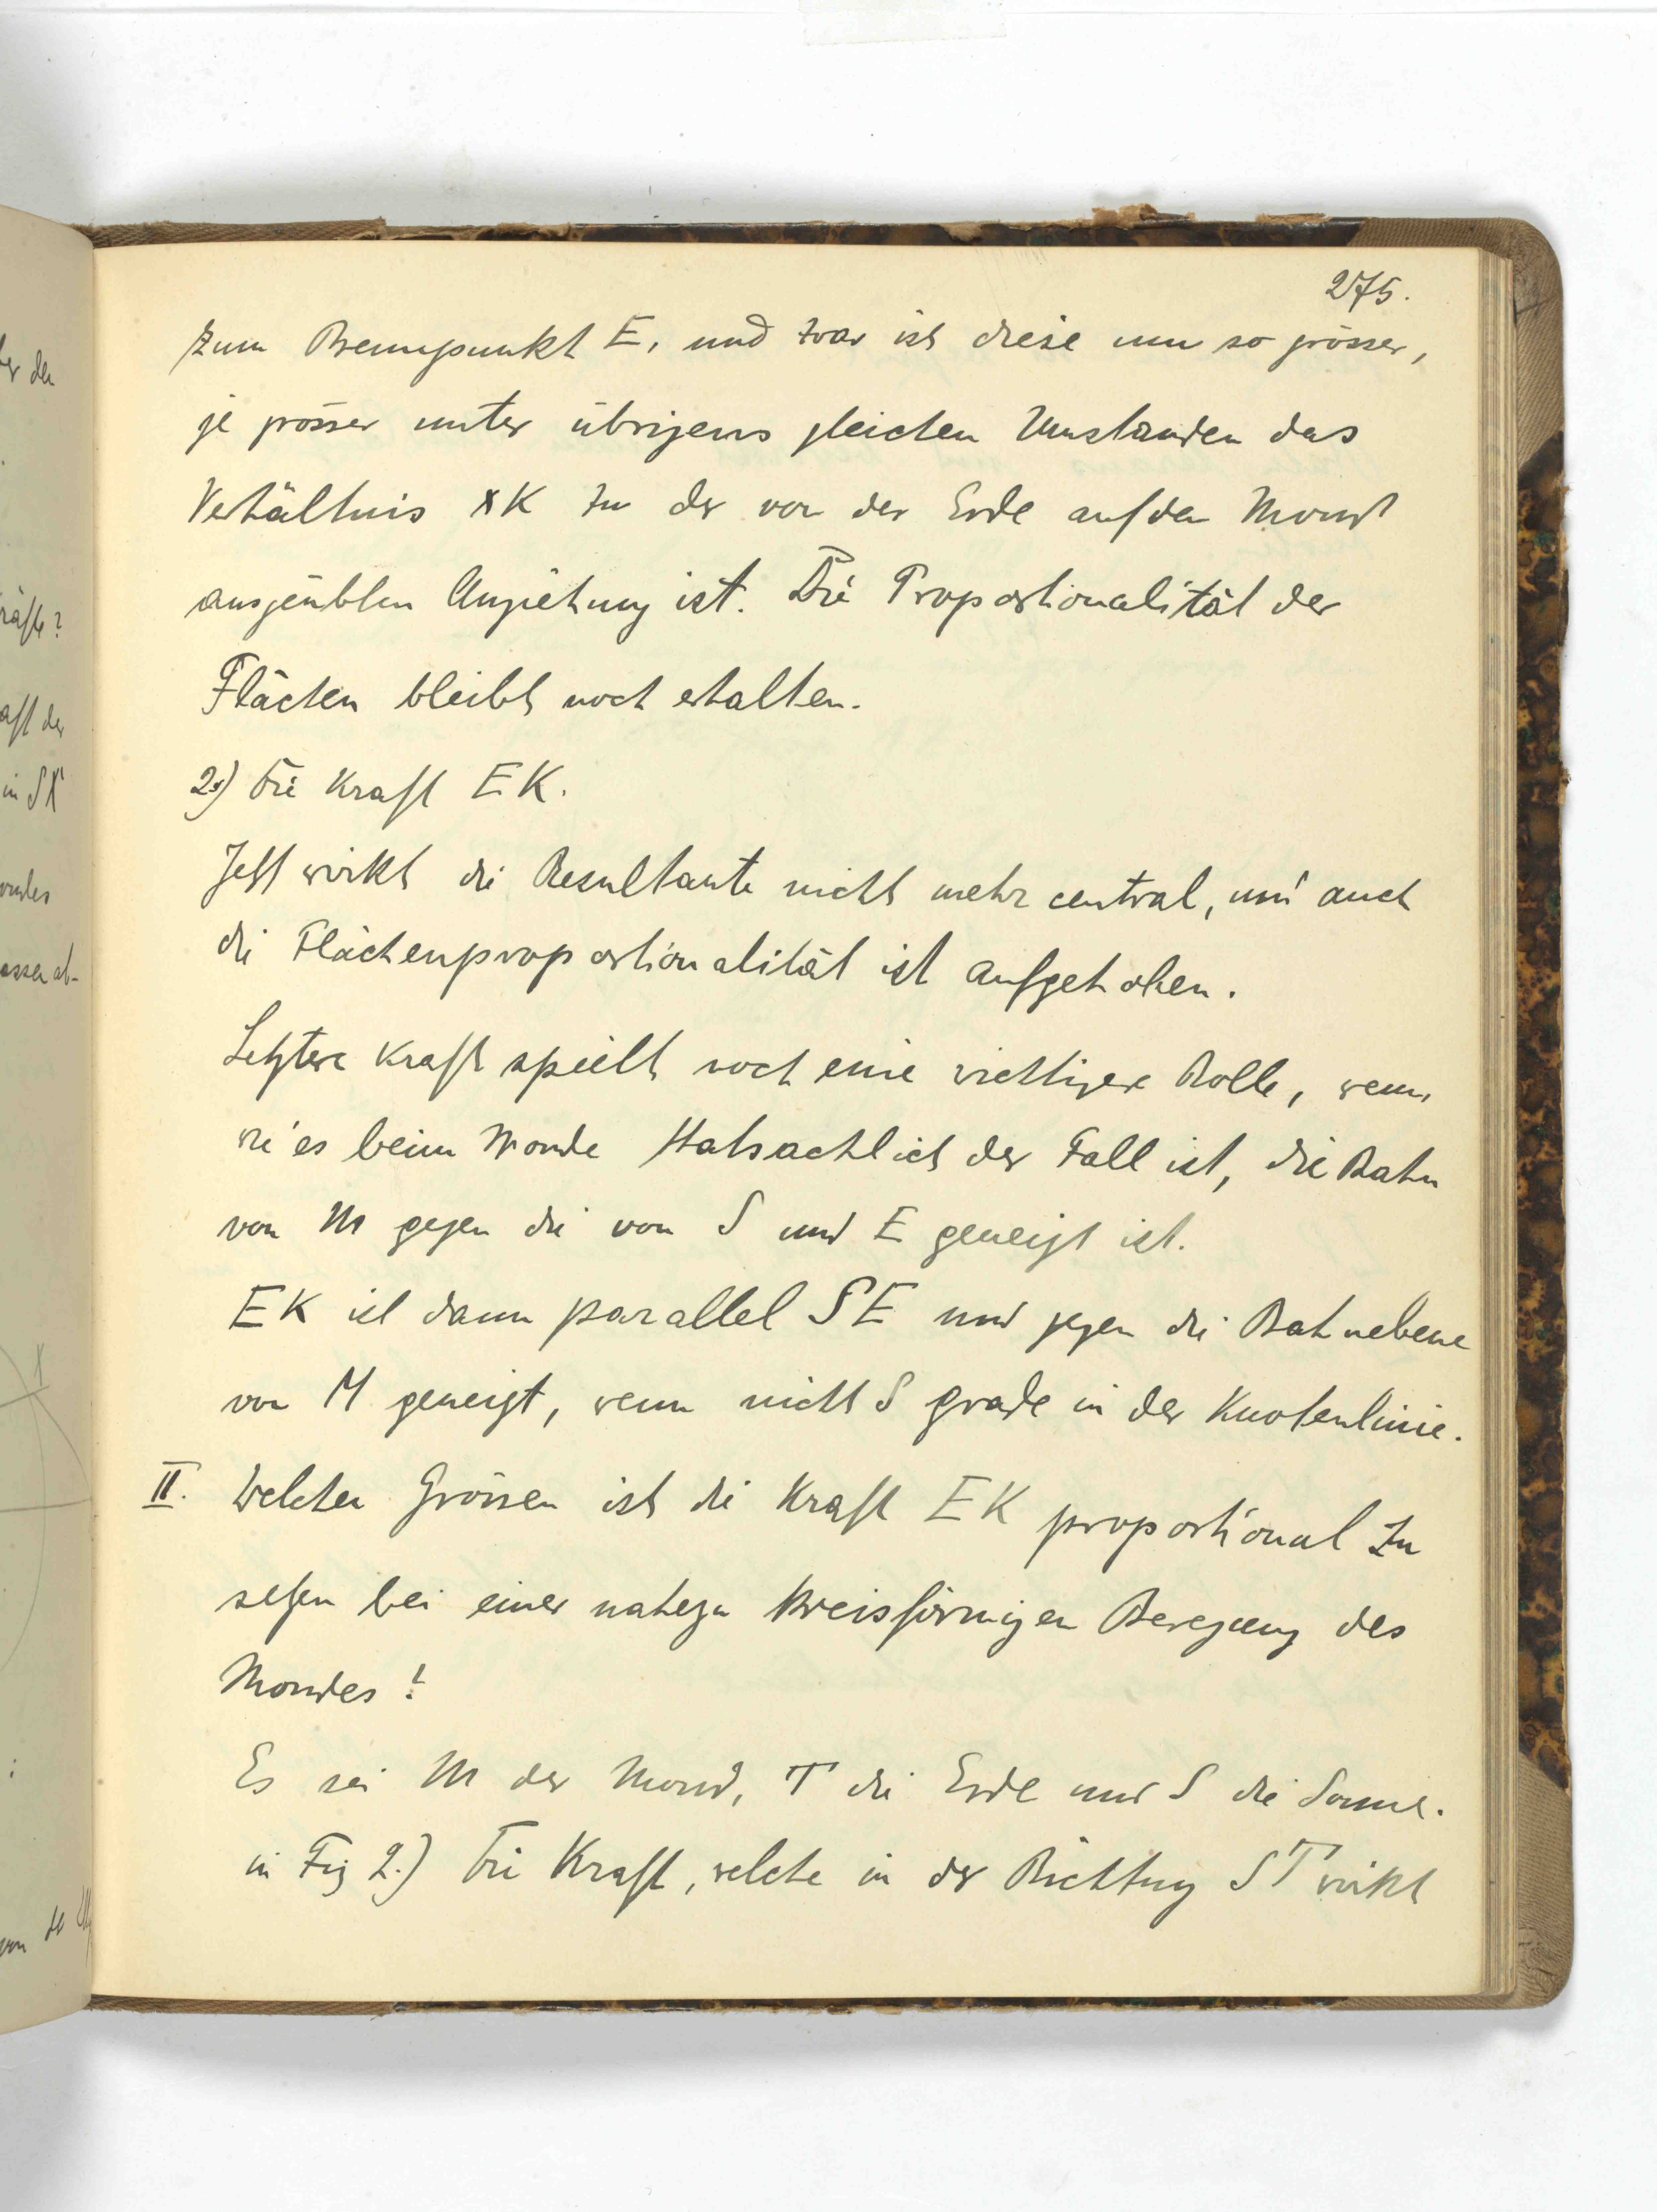 275.
zum Brennpunkt E, und zwar ist diese um so grösser,
je grösser unter übrigens gleichen Umstanden das
Verhältnis XK zu der von der Erde auf den Mond
ausgeübten Anziehung ist. Die Proportionalität der
Flächen bleibt noch erhalten.
2.) Die Kraft EK.
Jetzt wirkt die Resultante nicht mehr central, und auch
die Flächenproportionalität ist aufgehoben.
Letztere Kraft spielt noch eine wichtigere Rolle, wenn,
wie es beim Monde thatsachlich der Fall ist, die Bahn
von M gegen die von S und E geneigt ist.
EK ist dann parallel SE und gegen die Bahnebene
von M geneigt, wenn nicht S grade in der Knotenlinie.
II. Welchen Grössen ist die Kraft EK proportional zu
setzen bei einer nahezu kreisförmigen Bewegung des
Mondes?
Es sei M der Mond, T die Erde und S die Sonne.
in Fig 2.) Die Kraft, welche in der Richtung ST wirkt